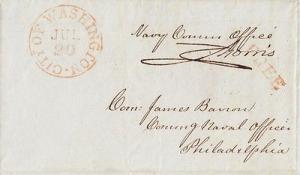 CITY OF WASHINGTON
JUL
20
Navy Comm Office
Morris
FREE
Com: James Barron
Comm'g Naval Officer
Philadelphia